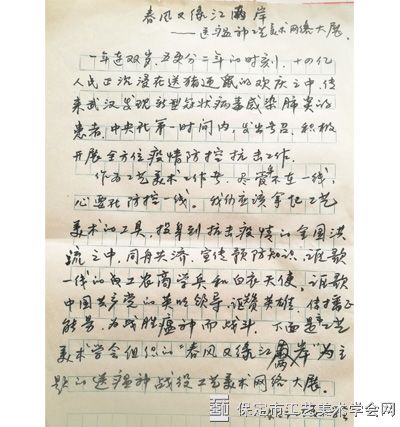 春风又绿江两岸
——送瘟神工艺美术网络大展
一年连双岁,五更分二年的时刻,十四亿
人民正沉浸在送猪迎鼠的欢庆之中,传
来武汉发现新型冠状病毒感染肺炎的
患者,中央在第一时间内,发出号召,积极
开展全方位疫情防控抗击工作。
作为工艺美术工作者,尽管不在一线,
心要在防控一线。我们应该拿起工艺
美术的工具,投身到抗击疫情的全国洪
流之中,同舟共济,宣传预防知识,讴歌
一线的白工农商学兵和白衣天使,讴歌
中国共产党的英明领导,讴赞英雄,传播正
能量,为战胜瘟神而战斗,下面是工艺
美术学会组织的“春风又绿江两岸”为主
题的送瘟神战役工艺美术网络大展。
保定市工艺美术学会网